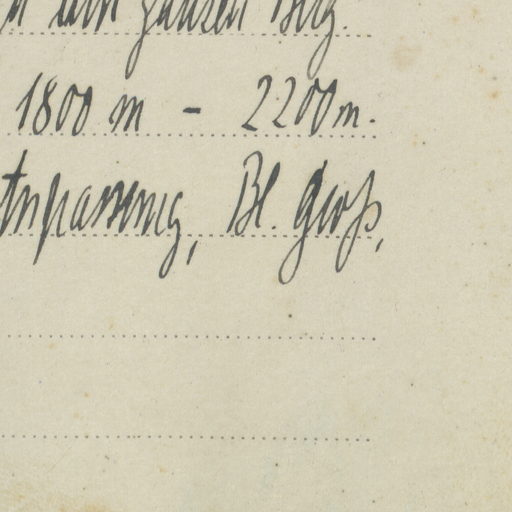 dem ganzen Berg.
1800 m - 2200 m.
Anpassung, Bl. groß,